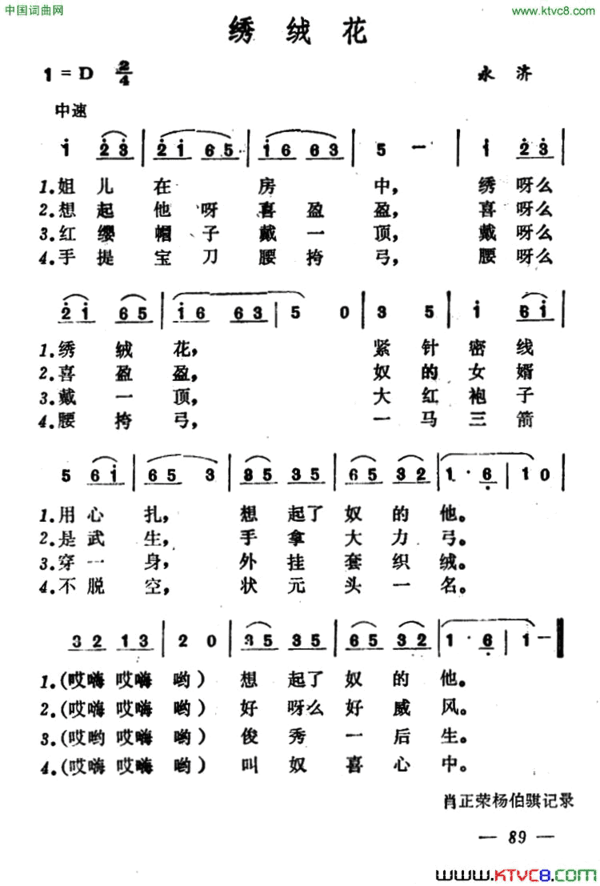 中国词曲网
www.ktvc8.com
绣绒花
1=D 2/4
永济
中速
i 2̇3̇ | 2̇i 65 | i6 63 | 5 — | i 2̇3̇ |
1.姐儿在房中,绣呀么
2.想起他呀喜盈盈,喜呀么
3.红缨帽子戴一顶,戴呀么
4.手提宝刀腰挎弓,腰呀么
2̇i 65 | i6 63 | 5 0 | 3 5 | i 6i |
1.绣绒花,紧针密线
2.喜盈盈,奴的女婿
3.戴一顶,大红袍子
4.腰挎弓,一马三箭
5 6i | 65 3 | 35 35 | 65 32 | 1·6̣ | 10 |
1.用心扎,想起了奴的他。
2.是武生,手拿大力弓。
3.穿一身,外挂套织绒。
4.不脱空,状元头一名。
32 13 | 2 0 | 35 35 | 65 32 | 1·6̣ | 1— ‖
1.(哎嗨 哎嗨 哟)想起了奴的他。
2.(哎嗨 哎嗨 哟)好呀么好威风。
3.(哎哟 哎嗨 哟)俊秀一后生。
4.(哎嗨 哎嗨 哟)叫奴喜心中。
肖正荣杨伯骐记录
— 89 —
WWW.KTVC8.COM